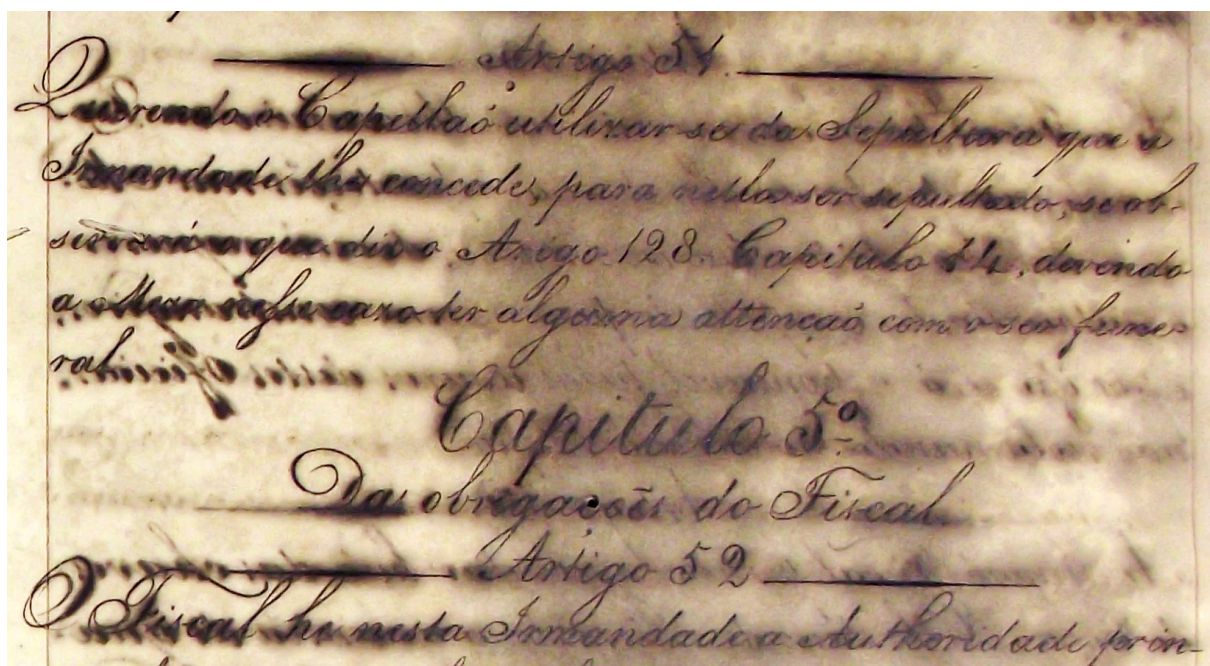 Artigo 51.
Querendo o Capellaõ utilizar-se da Sepultura que a
Irmandade lhe concede, para nella ser sepultado, se ob-
servará o que diz o Artigo 128. Capitulo 14, devendo
a Meza nesse cazo ter alguma attençaõ com o seu fune-
ral.
Capitulo 5º
Das obrigações do Fiscal
Artigo 52
O Fiscal he nesta Irmandade a Authoridade prin-